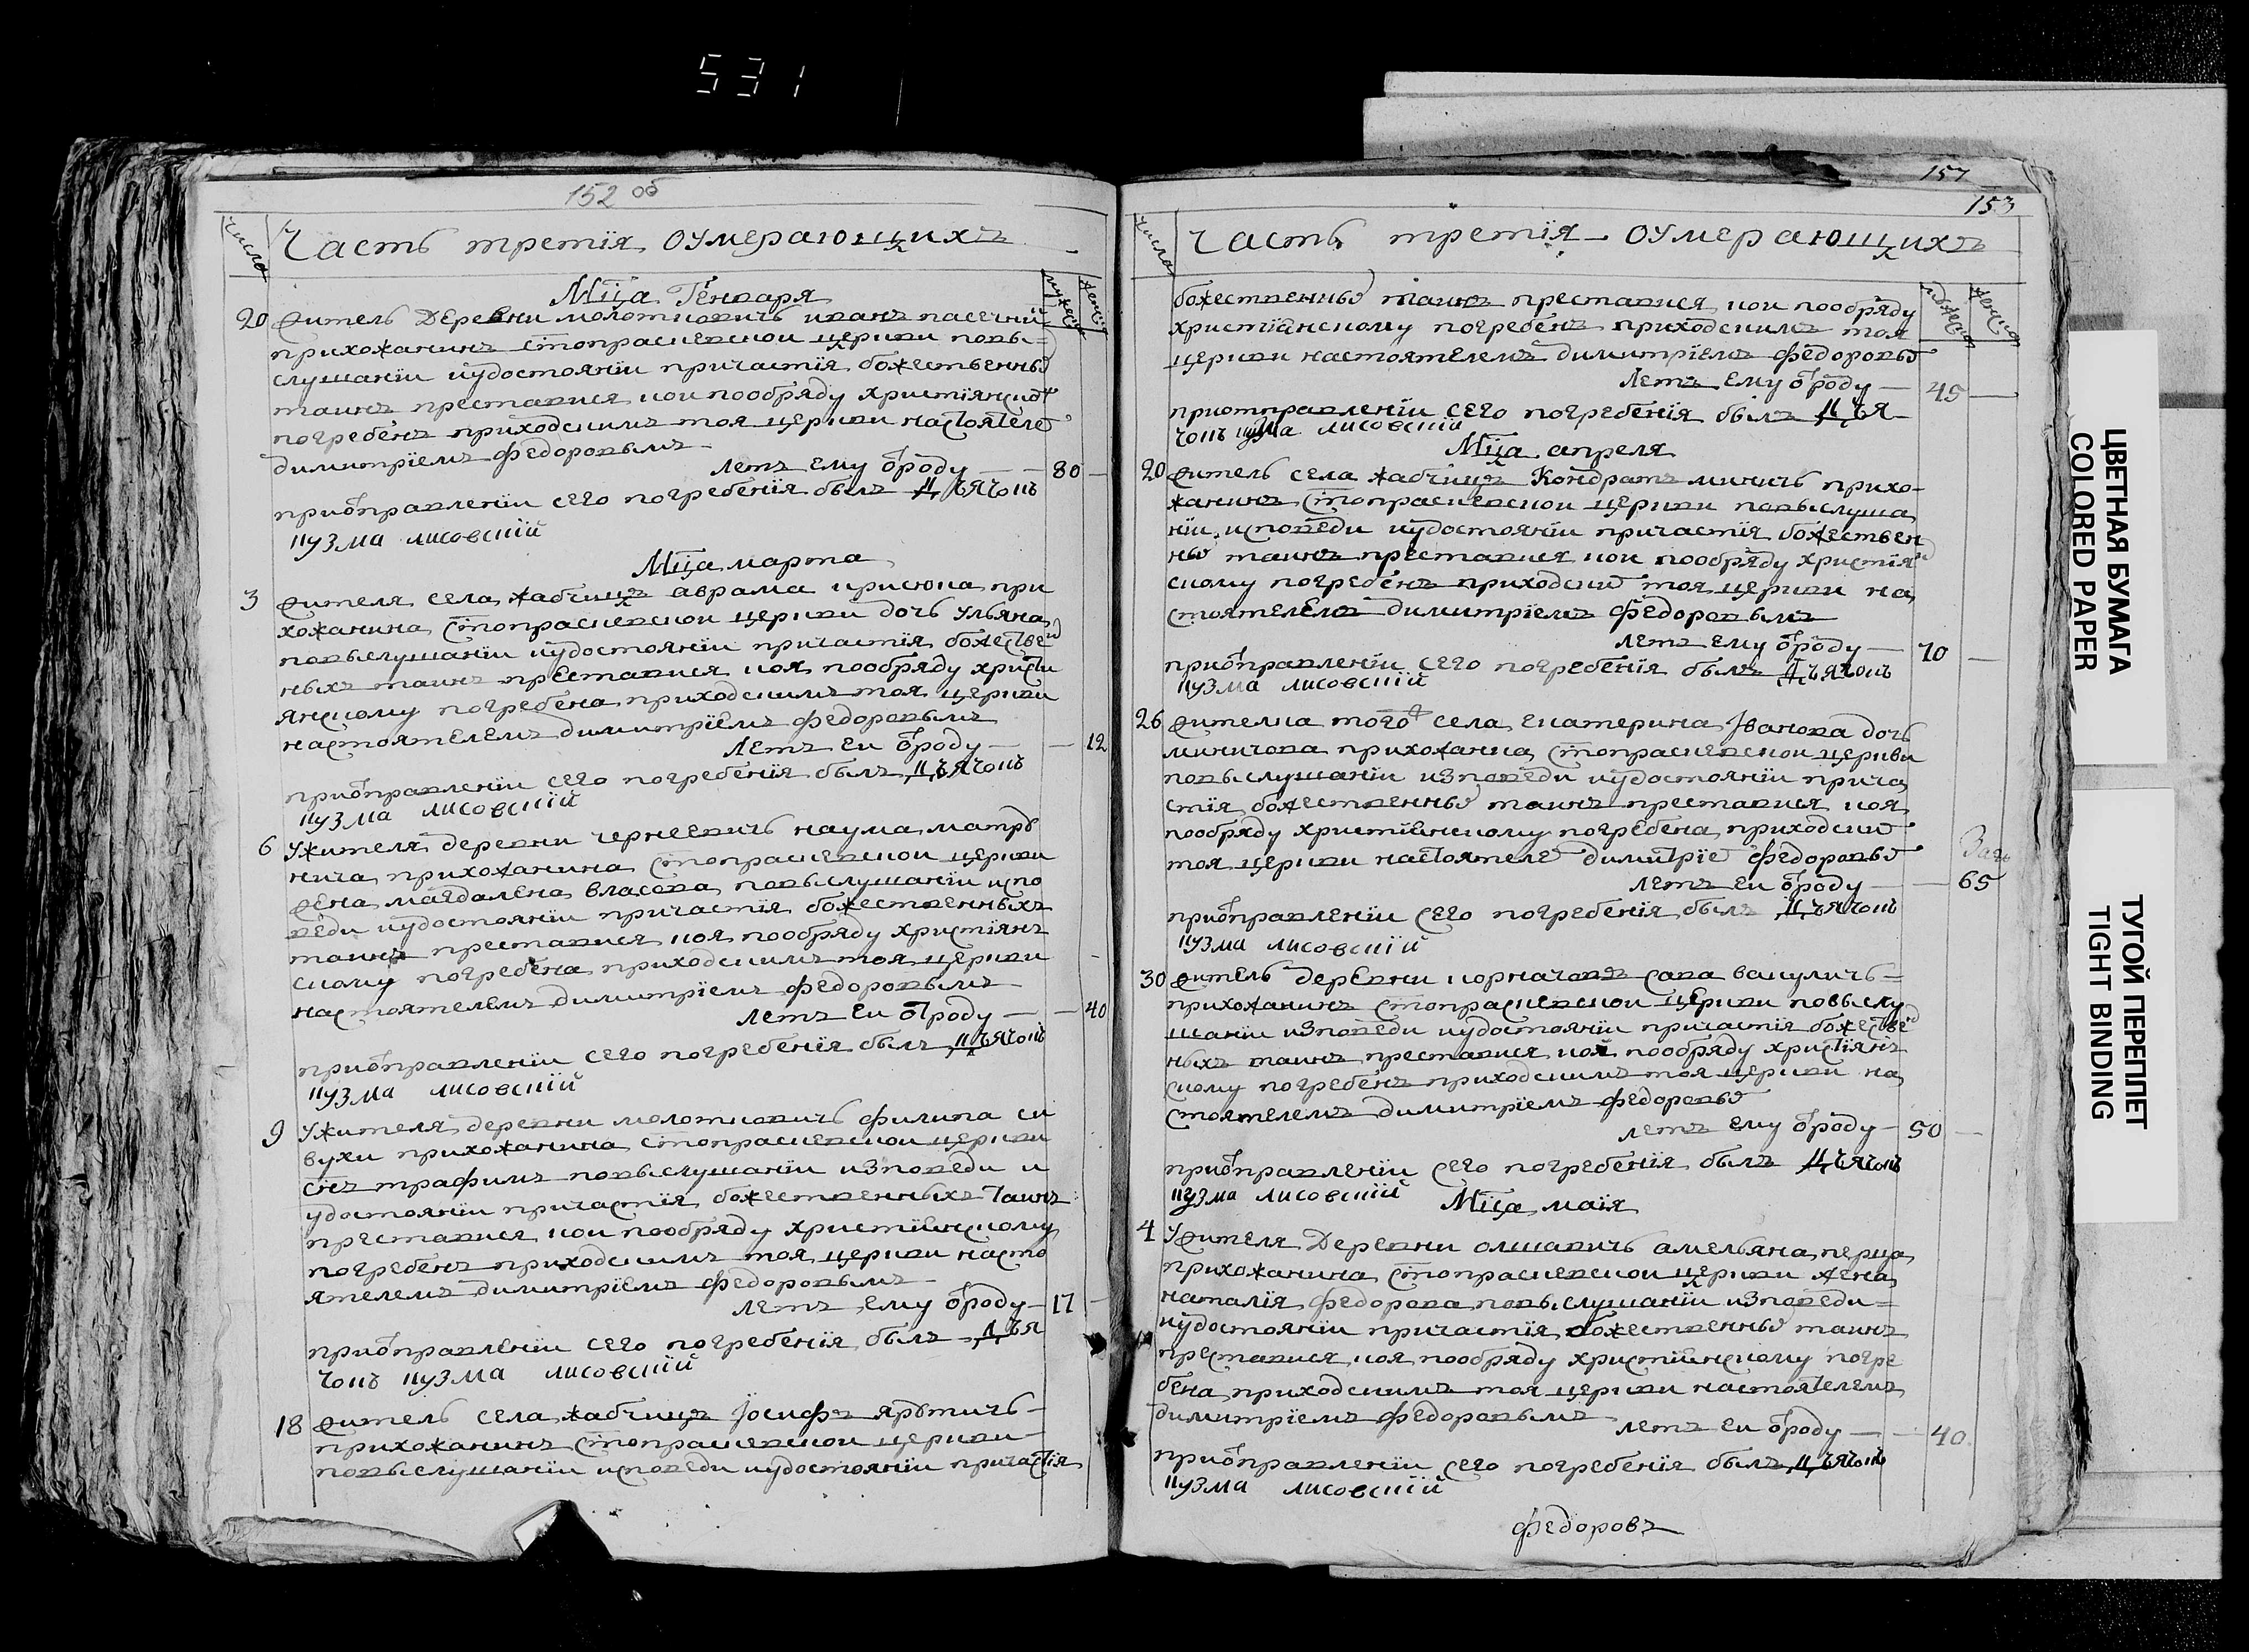 531
152 об
число
Часть третїя оумерающихъ
мужеска
женска
Мца Генваря
20 житель Деревни молотковичъ иванъ пасечни
прихожанинъ стопраскевскои церкви повы=
слушанїи иудостоянїи причастїя божественны
таинъ преставися кои пообряду християнско
погребенъ приходскимъ тоя церкви настоятеле
димитрїемъ федоровымъ
летъ ему ѿроду 80
приѿправленїи сего погребенїя былъ дъячокъ
кузма лисовскїй
Мца марта
3 жителя села жабчицъ аврама крисюка при
хожанина стопраскевскои церкви дочь ульяна
повыслушанїи иудостоянїи причастїя божестве
ныхъ таинъ преставися коя пообряду христи
янскому погребена приходскимъ тоя церкви
настоятелемъ димитрїемъ федоровымъ
летъ еи ѿроду 12
приѿправленїи сего погребенїя былъ дъячокъ
кузма лисовскїй
6 Ужителя деревни чернеевичъ наума матре
нича прихожанина стопраскевскои церкви
жена магдалена власова повыслушанїи испо
веди иудостоянїи причастїя божественныхъ
таинъ преставися коя пообряду христїянъ
скому погребена приходскимъ тоя церкви
настоятелемъ димитрїемъ федоровымъ
летъ еи ѿроду 40
приѿправленїи сего погребенїя былъ дъячокъ
кузма лисовскїй
9 Ужителя деревни молотковичъ филипа си
вухи прихожанина стопраскевскои церкви
снъ трафимъ повыслушанїи изповеди и
удостоянїи причастїя божественныхъ таинъ
преставися кои пообряду христїянскому
погребенъ приходскимъ тоя церкви насто
ятелемъ димитрїемъ федоровымъ
летъ ему ѿроду 17
приѿправленїи сего погребенїя былъ дъя
чокъ кузма лисовскїй
18 житель села жабчицъ Іосифъ яретичъ
прихожанинъ стопраскевскои церкви
повыслушанїи исповеди иудостоянїи причастїя
157
153
число
часть третїя оумерающихъ
мужеска
женска
божественны таинъ преставися кои пообряду
христїанскому погребенъ приходскимъ тоя
церкви настоятелемъ димитрїемъ федоровы
летъ ему ѿроду 45
приотправленїи сего погребенїя былъ дъя
чокъ кузма лисовскїй
Мца апреля
20 житель села жабчицъ Кондратъ миничъ прихо-
жанинъ стопраскевскои церкви повыслуша
нїи исповеди иудостоянїи причастїя божествен
ны таинъ преставися кои пообряду христїян
скому погребенъ приходски тоя церкви на
стоятелемъ димитрїемъ федоровымъ
летъ ему ѿроду 70
приѿправленїи сего погребенїя былъ дъячокъ
кузма лисовскїй
26 жителка того села екатерина Іванова дочь
миничова прихожанка стопраскевскои церкви
повыслушанїи изповеди иудостоянїи прича
стїя божественны таинъ преставися коя
пообряду христїянскому погребена приходски
тоя церкви настоятеле димитрїе федоровы
летъ еи ѿроду 65
приѿправленїи сего погребенїя былъ дъячокъ
кузма лисовскїй
30 житель деревни корначовъ сава вакуличъ=
прихожанинъ стопраскевскои церкви повыслу
шанїи изповеди иудостоянїи причастїя божестве
ныхъ таинъ преставися кои пообряду христїянъ
скому погребенъ приходскимъ тоя церкви на
стоятелемъ димитрїемъ федоровы
летъ ему ѿроду 50
приѿправленїи сего погребенїя былъ дъячокъ
кузма лисовскїй
Мца маїя
4 Ужителя Деревни олшавичъ амельяна перца
прихожанина стопраскевскои церкви жена
наталїя федорова повыслушанїи изповеди=
иудостоянїи причастїя божественны таинъ
преставися коя пообряду христїянскому погре
бена приходскимъ тоя церкви настоятелемъ
димитрїемъ федоровымъ
летъ еи ѿроду 40
приѿправленїи сего погребенїя былъ дъячокъ
кузма лисовскїй
федоровъ
ЦВЕТНАЯ БУМАГА
COLORED PAPER
ТУГОЙ ПЕРЕПЛЕТ
TIGHT BINDING